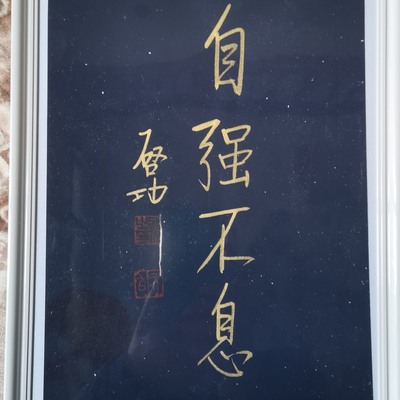 自强不息
啟功